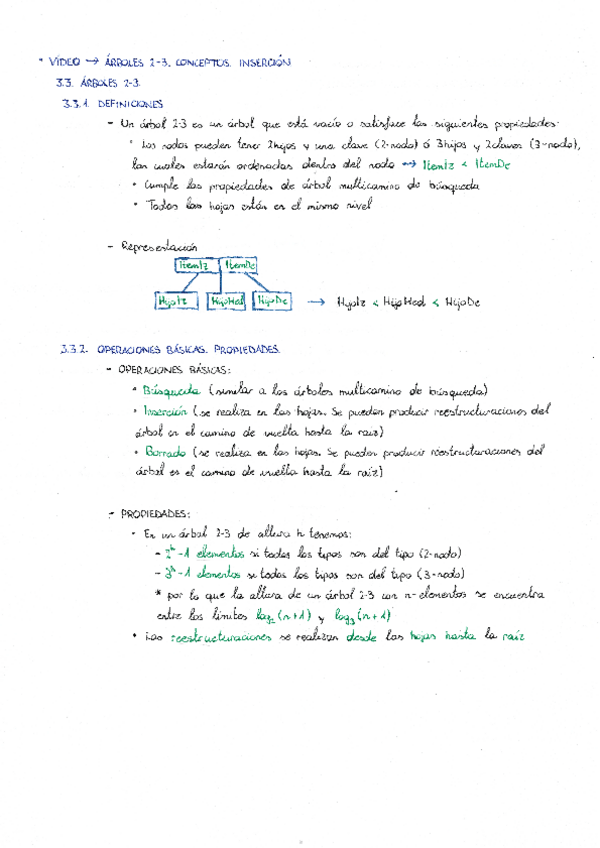 • VÍDEO → ÁRBOLES 2-3. CONCEPTOS. INSERCIÓN
3.3. ÁRBOLES 2-3.
3.3.1. DEFINICIONES
- Un árbol 2-3 es un árbol que está vacío o satisface las siguientes propiedades:
• Los nodos pueden tener 2 hijos y una clave (2-nodo) ó 3 hijos y 2 claves (3-nodo),
las cuales estarán ordenadas dentro del nodo → ItemIz < ItemDe
• Cumple las propiedades de árbol multicamino de búsqueda
• Todas las hojas están en el mismo nivel
- Representación
ItemIz ItemDe
HijoIz HijoMed HijoDe → HijoIz < HijoMed < HijoDe
3.3.2. OPERACIONES BÁSICAS. PROPIEDADES.
- OPERACIONES BÁSICAS:
• Búsqueda (similar a los árboles multicamino de búsqueda)
• Inserción (se realiza en las hojas. Se pueden producir reestructuraciones del
árbol en el camino de vuelta hasta la raíz)
• Borrado (se realiza en las hojas. Se pueden producir reestructuraciones del
árbol en el camino de vuelta hasta la raíz)
- PROPIEDADES:
• En un árbol 2-3 de altura h tenemos:
- 2^h - 1 elementos si todos los tipos son del tipo (2-nodo)
- 3^h - 1 elementos si todos los tipos son del tipo (3-nodo)
* por lo que la altura de un árbol 2-3 con n-elementos se encuentra
entre los límites log₂(n+1) y log₃(n+1)
• Las reestructuraciones se realizan desde las hojas hasta la raíz